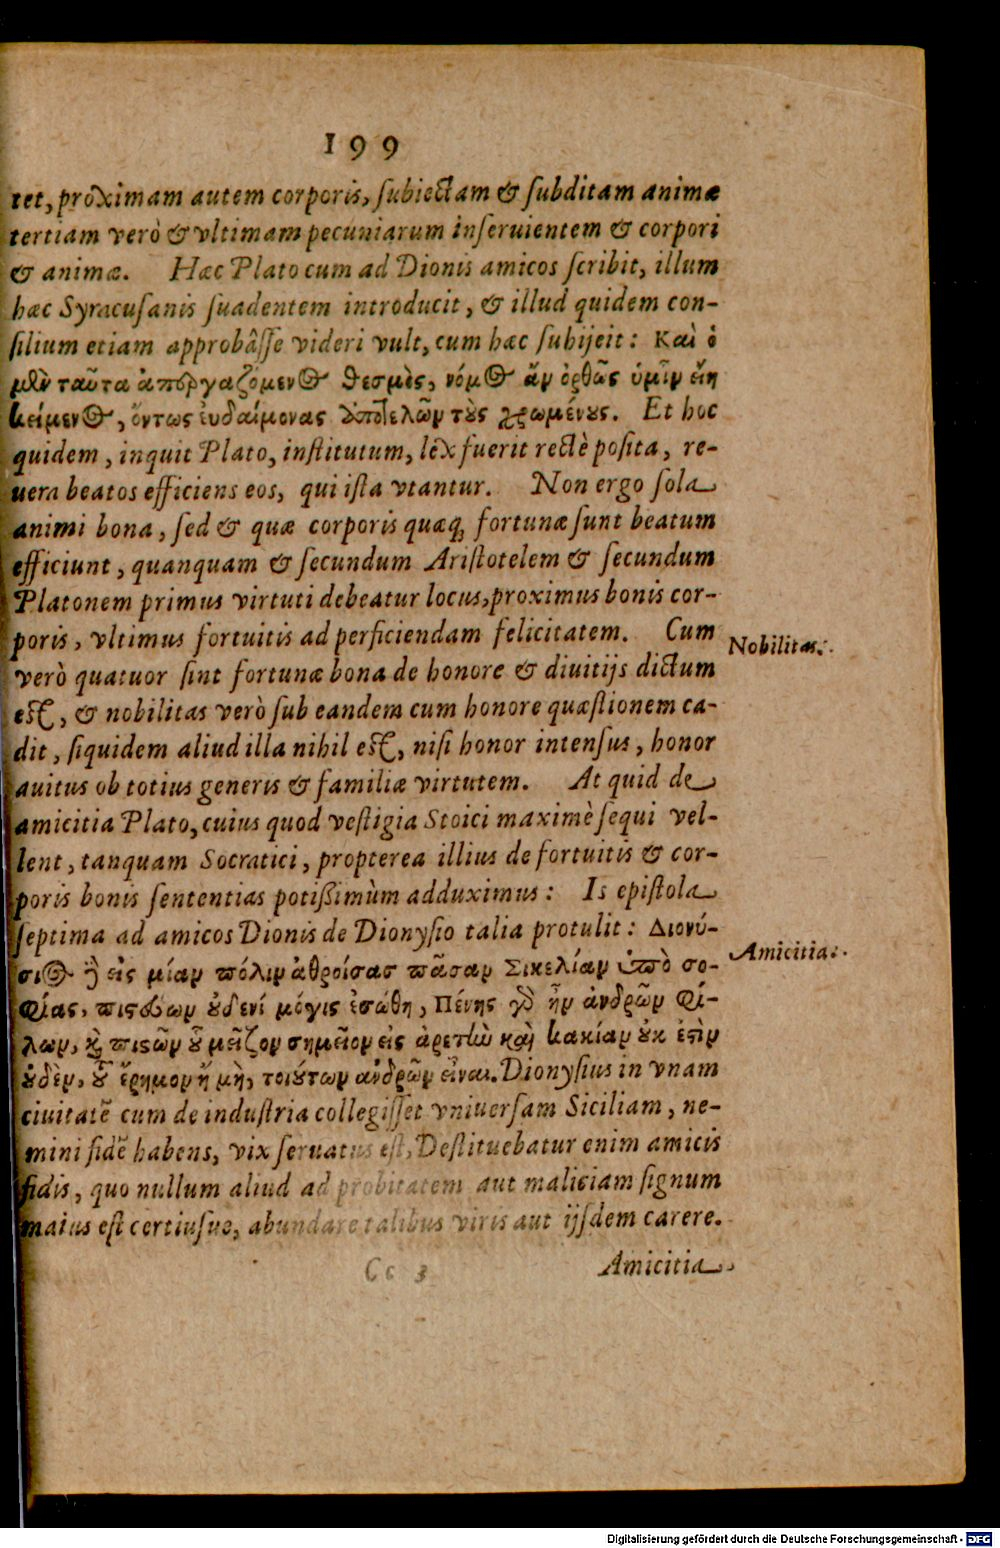 199
tet, proximam autem corporis, ſubiectam & ſubditam animæ
tertiam verò & vltimam pecuniarum inſeruientem & corpori
& animæ. Hæc Plato cum ad Dionis amicos ſcribit, illum
hæc Syracuſanis ſuadentem introducit, & illud quidem con-
ſilium etiam approbâſſe videri vult, cum hæc ſubijcit: Καὶ ὁ
μὲν ταῦτα ἀπεργαζόμενος θεσμὸς, νόμος ἂν ὀρθῶς ὑμῖν εἴη
κείμενος, ὄντως ἐυδαίμονας ἀποτελῶν τοὺς χρωμένους. Et hoc
quidem, inquit Plato, inſtitutum, lex fuerit rectè poſita, re-
uera beatos efficiens eos, qui iſta vtantur. Non ergo ſola
animi bona, ſed & quæ corporis quæq; fortunæ ſunt beatum
efficiunt, quanquam & ſecundum Ariſtotelem & ſecundum
Platonem primus virtuti debeatur locus, proximus bonis cor-
poris, vltimus fortuitis ad perficiendam felicitatem. Cum
Nobilitas.
verò quatuor ſint fortunæ bona de honore & diuitijs dictum
eſt, & nobilitas verò ſub eandem cum honore quæſtionem ca-
dit, ſiquidem aliud illa nihil eſt, niſi honor intenſus, honor
auitus ob totius generis & familiæ virtutem. At quid de
amicitia Plato, cuius quod veſtigia Stoici maximè ſequi vel-
lent, tanquam Socratici, propterea illius de fortuitis & cor-
poris bonis ſententias potiſſimùm adduximus: Is epiſtola
ſeptima ad amicos Dionis de Dionyſio talia protulit: Διονύ-
Amicitia.
σιος δὲ εἰς μίαν πόλιν ἀθροίσας πᾶσαν Σικελίαν ὑπὸ σο-
φίας, πιστεύων οὐδενί μόγις ἐσώθη, Πένης γὰρ ἦν ἀνδρῶν φί-
λων, καὶ πιστῶν οὗ μεῖζον σημεῖον εἰς ἀρετὴν καὶ κακίαν οὐκ ἐστὶν
οὐδὲν, τοῦ ἔρημον ἢ μὴ, τοιούτων ἀνδρῶν εἶναι. Dionyſius in vnam
ciuitatē cum de induſtria collegiſſet vniuerſam Siciliam, ne-
mini fidē habens, vix ſeruatus eſt, Deſtituebatur enim amicis
fidis, quo nullum aliud ad probitatem aut maliciam ſignum
maius eſt certiuſue, abundare talibus viris aut ijſdem carere.
Cc 3
Amicitia
Digitalisierung gefördert durch die Deutsche Forschungsgemeinschaft - DFG